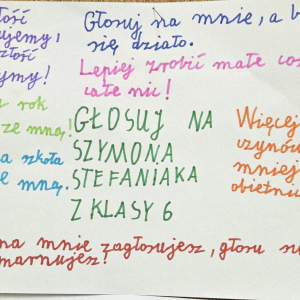 Głosuj na mnie, a b
się działo.
Lepiej zrobić małe coś
całe nic!
rok
ze mną!
GŁOSUJ NA
SZYMONA
STEFANIAKA
Z KLASY 6
szkoła
ze mną.
Więcej
czynów
mniej
obietnic
na mnie zagłosujesz, głosu
marnujesz!